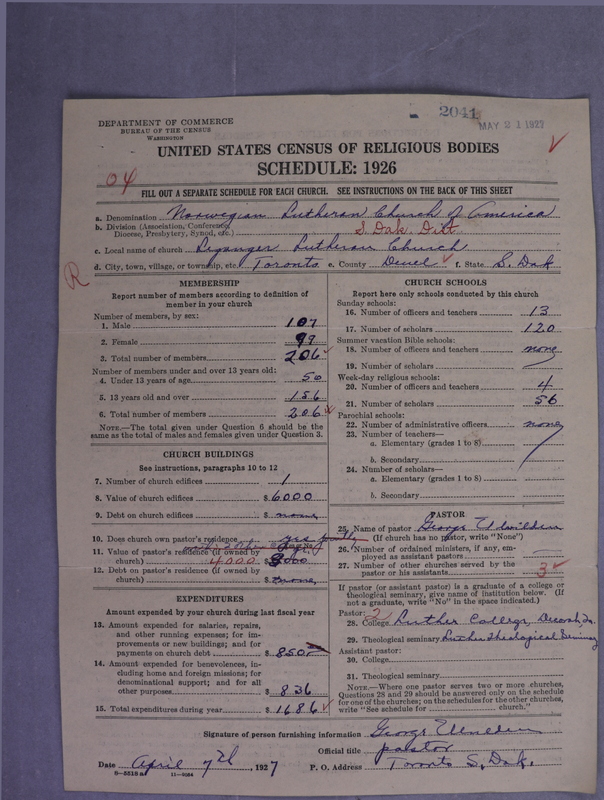 2041
MAY 21 1927
DEPARTMENT OF COMMERCE
BUREAU OF THE CENSUS
WASHINGTON
UNITED STATES CENSUS OF RELIGIOUS BODIES
SCHEDULE: 1926
04
FILL OUT A SEPARATE SCHEDULE FOR EACH CHURCH. SEE INSTRUCTIONS ON THE BACK OF THIS SHEET
a. Denomination Norwegian Lutheran Church of America
b. Division (Association, Conference, Diocese, Presbytery, Synod, etc.) S. Dak. Dist.
c. Local name of church Lutheran Church
d. City, town, village, or township, etc. Toronto e. County Deuel f. State S. Dak
R
MEMBERSHIP
Report number of members according to definition of
member in your church
Number of members, by sex:
1. Male 107
2. Female 99
3. Total number of members 206
Number of members under and over 13 years old:
4. Under 13 years of age 50
5. 13 years old and over 156
6. Total number of members 206
NOTE.—The total given under Question 6 should be the
same as the total of males and females given under Question 3.
CHURCH BUILDINGS
See instructions, paragraphs 10 to 12
7. Number of church edifices 1
8. Value of church edifices $ 6000
9. Debt on church edifices $ none
10. Does church own pastor's residence yes partly
11. Value of pastor's residence (if owned by
church) 4000
12. Debt on pastor's residence (if owned by
church) $ none
EXPENDITURES
Amount expended by your church during last fiscal year
13. Amount expended for salaries, repairs,
and other running expenses; for im-
provements or new buildings; and for
payments on church debt $ 850
14. Amount expended for benevolences, in-
cluding home and foreign missions; for
denominational support; and for all
other purposes $ 836
15. Total expenditures during year $ 1686
CHURCH SCHOOLS
Report here only schools conducted by this church
Sunday schools:
16. Number of officers and teachers 13
17. Number of scholars 120
Summer vacation Bible schools:
18. Number of officers and teachers none
19. Number of scholars
Week-day religious schools:
20. Number of officers and teachers 4
21. Number of scholars 56
Parochial schools:
22. Number of administrative officers none
23. Number of teachers—
a. Elementary (grades 1 to 8)
b. Secondary
24. Number of scholars—
a. Elementary (grades 1 to 8)
b. Secondary
PASTOR
25. Name of pastor George
(If church has no pastor, write "None")
26. Number of ordained ministers, if any, em-
ployed as assistant pastors
27. Number of other churches served by the
pastor or his assistants 3
If pastor (or assistant pastor) is a graduate of a college or
theological seminary, give name of institution below. (If
not a graduate, write "No" in the space indicated.)
Pastor: 2
28. College Luther College, Decorah, Ia.
29. Theological seminary Luther Theological Seminary
Assistant pastor:
30. College
31. Theological seminary
NOTE.—Where one pastor serves two or more churches,
Questions 28 and 29 should be answered only on the schedule
for one of the churches; on the schedules for the other churches,
write "See schedule for church."
Signature of person furnishing information George
Official title pastor
Date April 7th, 1927 P. O. Address Toronto S. Dak.
11-9084